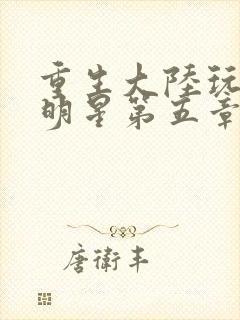 重生大陸玩
明星第五章
唐衛丰